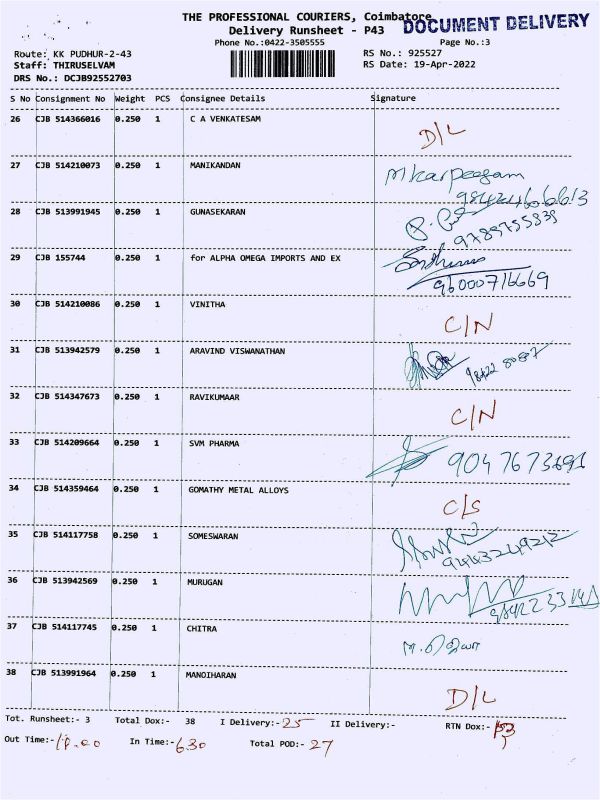 THE PROFESSIONAL COURIERS, Coimbatore
DOCUMENT DELIVERY
Delivery Runsheet - P43
Phone No.:0422-3505555
Page No.:3
Route: KK PUDHUR-2-43
RS No.: 925527
Staff: THIRUSELVAM
RS Date: 19-Apr-2022
DRS No.: DCJB92552703
S No Consignment No Weight PCS Consignee Details Signature
26 CJB 514366016 0.250 1 C A VENKATESAM D/L
27 CJB 514210073 0.250 1 MANIKANDAN
28 CJB 513991945 0.250 1 GUNASEKARAN 9789755839
29 CJB 155744 0.250 1 for ALPHA OMEGA IMPORTS AND EX
96000716669
30 CJB 514210086 0.250 1 VINITHA C/N
31 CJB 513942579 0.250 1 ARAVIND VISWANATHAN
32 CJB 514347673 0.250 1 RAVIKUMAAR C/N
33 CJB 514209664 0.250 1 SVM PHARMA
34 CJB 514359464 0.250 1 GOMATHY METAL ALLOYS C/S
35 CJB 514117758 0.250 1 SOMESWARAN
36 CJB 513942569 0.250 1 MURUGAN
37 CJB 514117745 0.250 1 CHITRA
38 CJB 513991964 0.250 1 MANOIHARAN D/L
Tot. Runsheet:- 3 Total Dox:- 38 I Delivery:- 25 II Delivery:- RTN Dox:-
Out Time:- In Time:- 6.30 Total POD:- 27